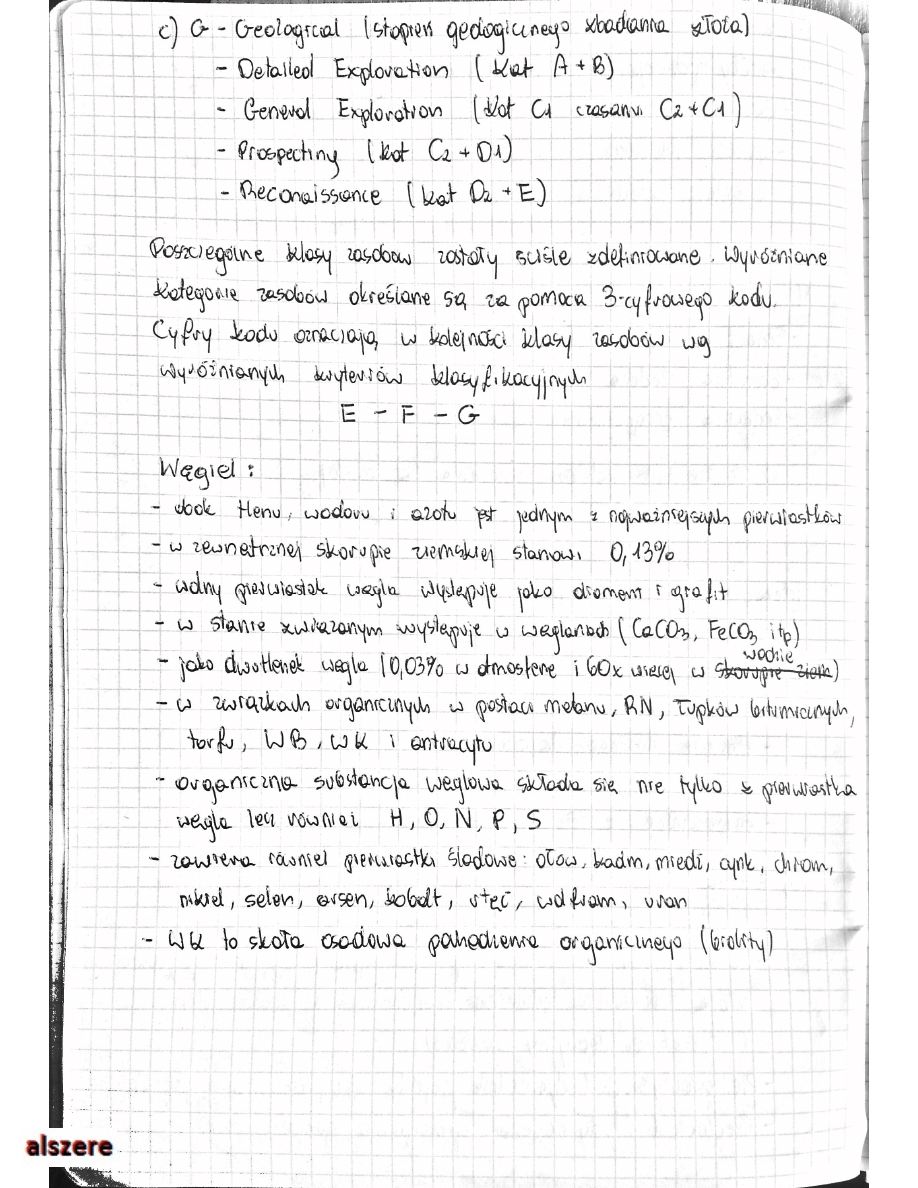 c) G - Geological (stopień geologicznego zbadania złoża)
- Detailed Exploration (kat A + B)
- General Exploration (kat C1 czasami C2 + C1)
- Prospecting (kat C2 + D1)
- Reconaissance (kat D2 + E)
Poszczególne klasy zasobów zostały ściśle zdefiniowane. Wyróżniane
kategorie zasobów określane są za pomocą 3-cyfrowego kodu.
Cyfry kodu oznaczają w kolejności klasy zasobów wg
wyróżnianych kryteriów klasyfikacyjnych
E - F - G
Węgiel :
- obok tlenu, wodoru i azotu jest jednym z najważniejszych pierwiastków
- w zewnętrznej skorupie ziemskiej stanowi 0,13%
- wolny pierwiastek węgla występuje jako diament i grafit
- w stanie związanym występuje w węglanach (CaCO3, FeCO3 itp)
- jako dwutlenek węgla (0,03% w atmosferze i 60x więcej w skorupie ziem wodzie)
- w związkach organicznych w postaci metanu, RN, łupków bitumicznych,
torfu, WB, WK i antracytu
- organiczna substancja węglowa składa się nie tylko z pierwiastka
węgla lecz również H, O, N, P, S
- zawiera również pierwiastki śladowe: ołów, kadm, miedź, cynk, chrom,
nikiel, selen, arsen, kobalt, rtęć, wolfram, uran
- WK to skała osadowa pochodzenia organicznego (biolity)
alszere